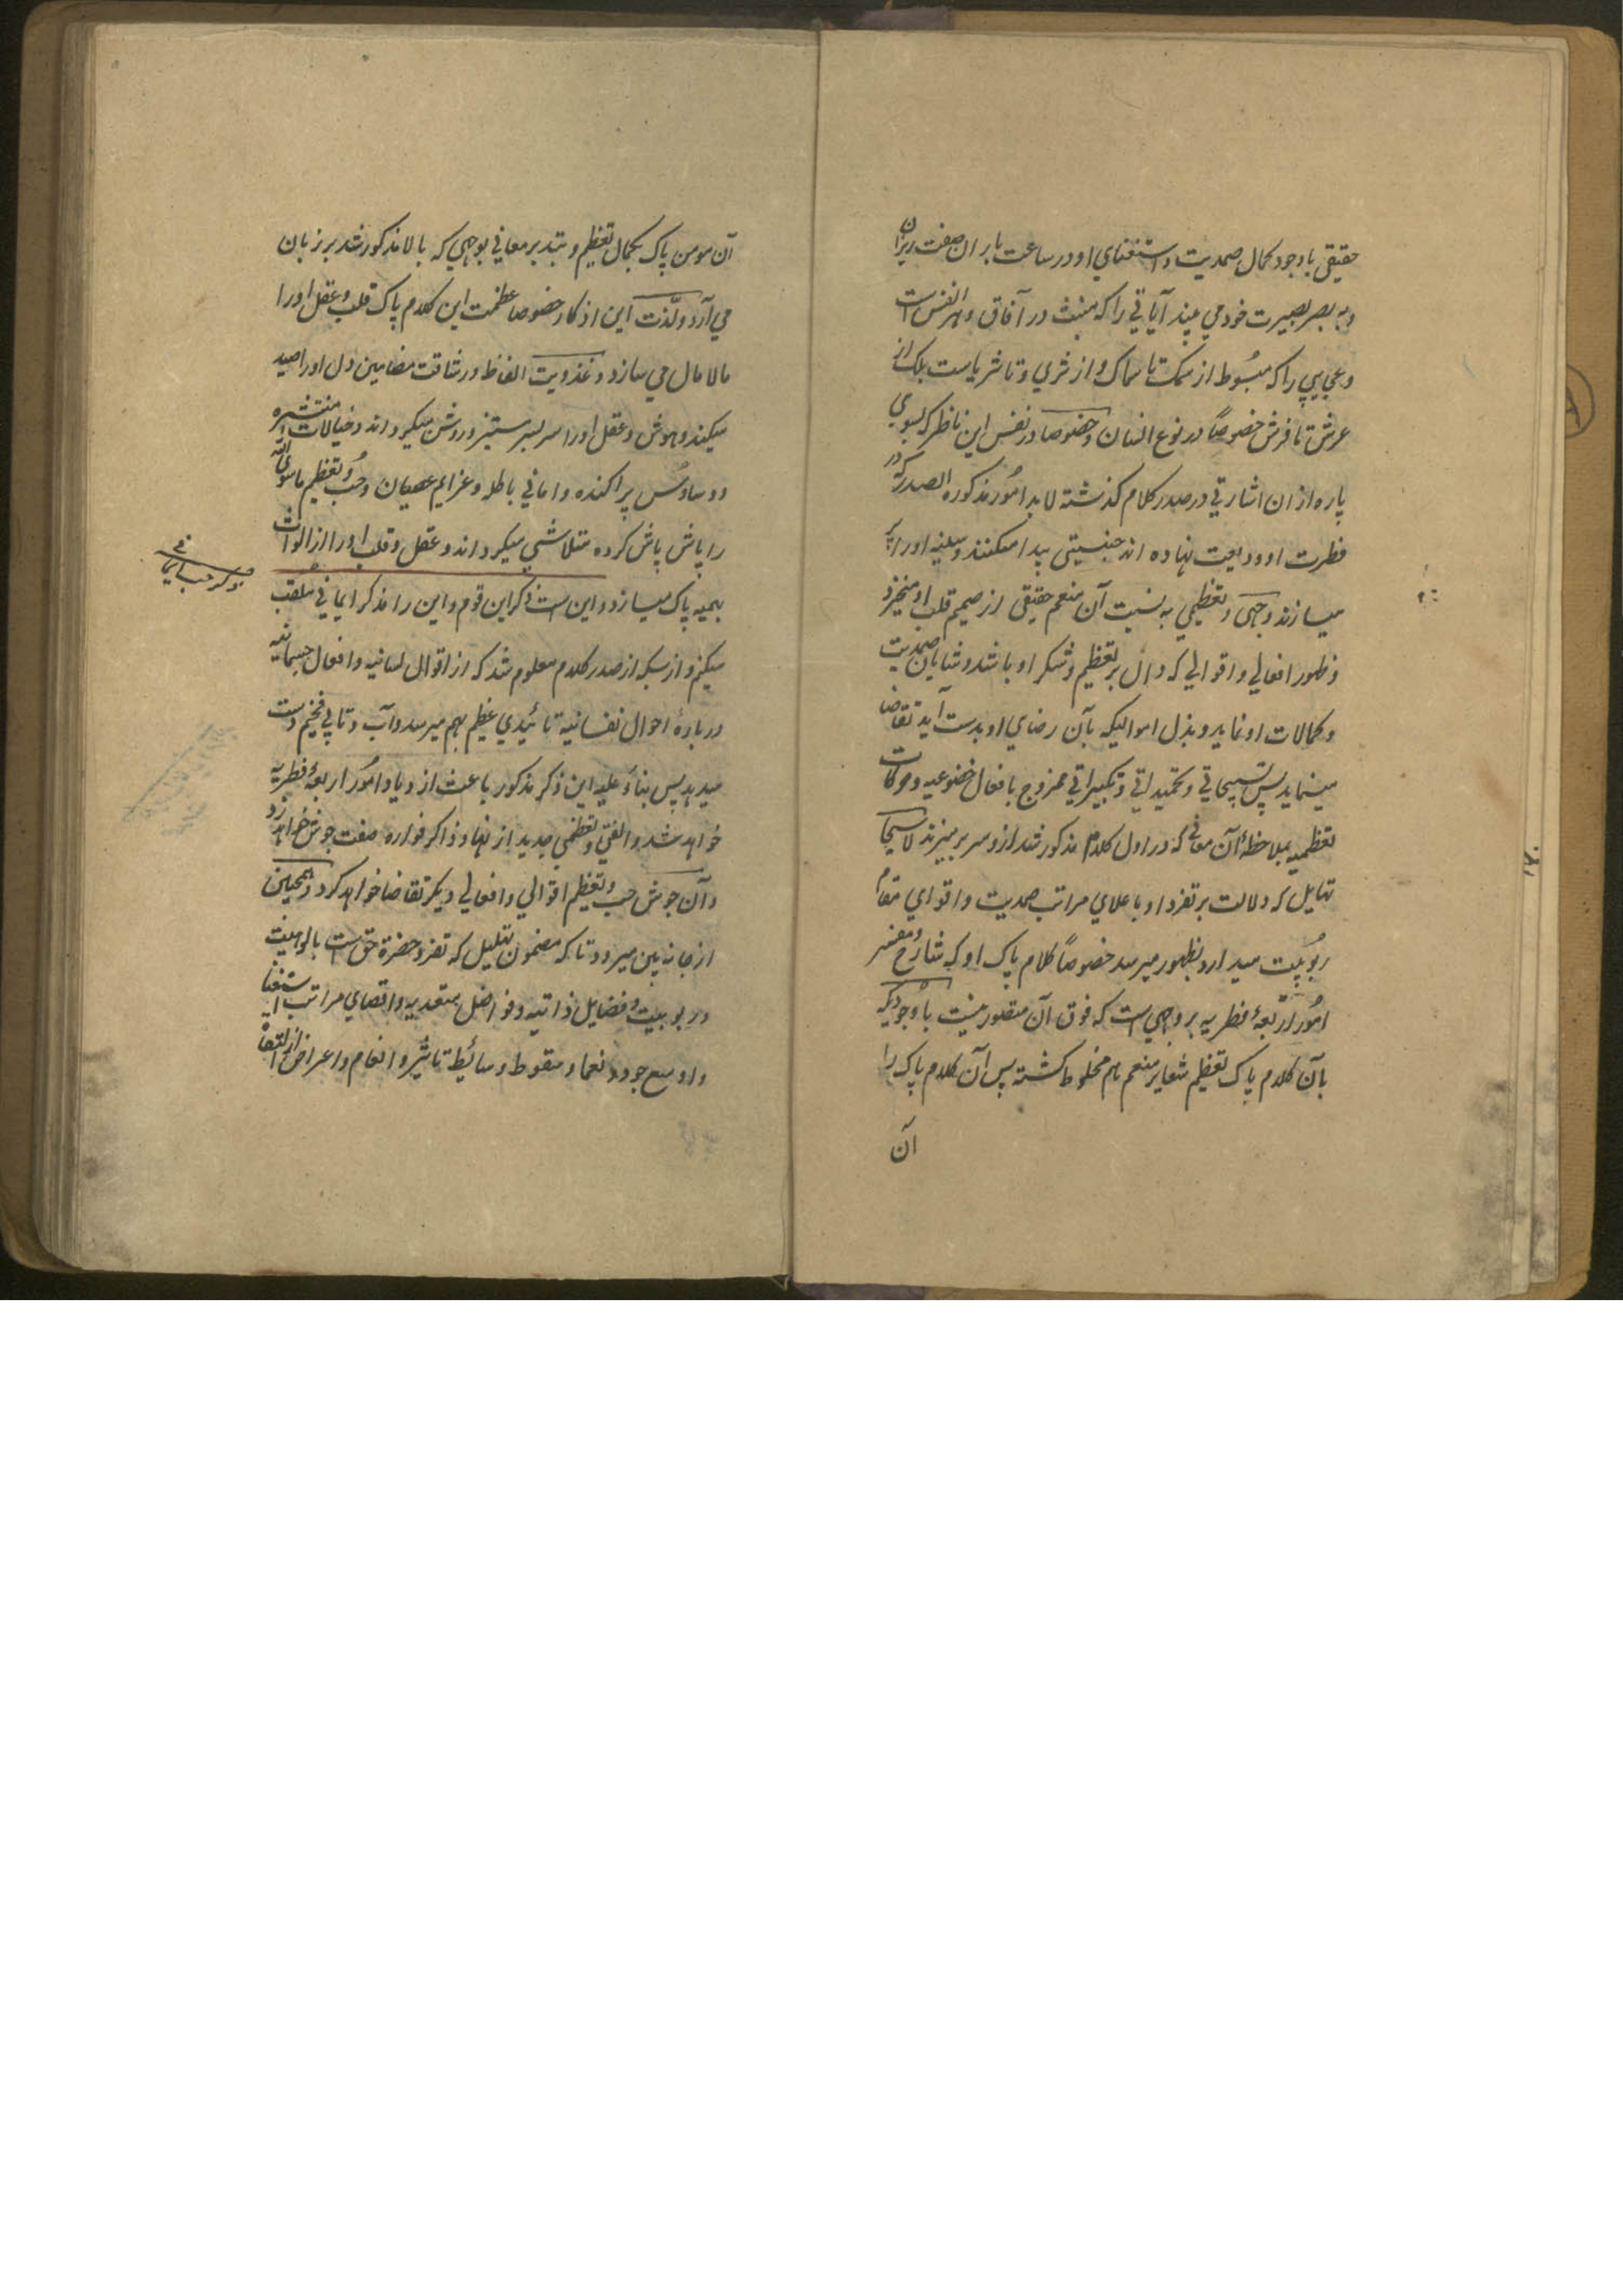 حقیقی باوجود کمال صمدیت و استغنای او در ساعت باران صفت ریزان
و به بصر بصیرت خود می بیند آیاتی را که منبث در آفاق و انفس است
و عجایبی را که مبسوط از سمک تا سماک و از ثری و تا ثریاست بلک از
عرش تا فرش خصوصاً در نوع انسان و خصوصا در نفس این ناظر که بسوی
پاره از ان اشارتی در صدر کلام گذشته لابد امور مذکورة الصدر که در
فطرت او ودیعت نهاده اند جنبشی پیدا میکنند و سینه او را پر
میسازند و حبی و تعظیمی به نسبت آن منعم حقیقی از صمیم قلب او منجر
و ظهور افعالی و اقوالی که دال بر تعظیم و شکر او باشد و شایان صمدیت
و کمالات او نماید و بذل اموالیکه بآن رضای او بدست آید تقاضا
مینماید پس تسبیحاتی و تحمیداتی و تکبیراتی ممزوج بافعال خضوعیه و حرکات
تعظمیه بملاحظهٔ آن معانی که در اول کلام مذکور شد از و سر بر میزند لاسیما
تهلیل که دلالت بر تفرد او باعلای مراتب صمدیت و اقوای مقام
ربوبیت میدارد بظهور میرسد خصوصاً کلام پاک او که شارح و مفسر
امور اربعهٔ فطریه بر وجهی است که فوق آن متصور نیست باوجودیکه
بآن کلام پاک تعظیم شعایر منعم هم مخلوط گشته پس آن کلام پاک را
آن
آن مومن پاک بکمال تعظیم و بتدبر معانی بوجهی که بالا مذکور شد بر زبان
می آرد و لذت این اذکار خصوصا عظمت این کلام پاک قلب و عقل او را
مالامال می سازد و عذوبت الفاظ و رشاقت مضامین دل او را صید
میکند و هوش و عقل او را سر بسر مستنیر و روشن میگرداند و خیالات منتشره
و وساوس پراکنده و امانی باطله و عزایم عصیان و حب و تعظیم ماسوی الله
را پاش پاش کرده متلاشی میگرداند و عقل و قلب او را از الواث
بهمیه پاک میسازد و این است ذکر این قوم و این را مذکر ایمانی ملقب
میکنم و از بسکه از صدر کلام معلوم شد که از اقوال لسانیه و افعال جسمانیه
دربارهٔ احوال نفسانیه تائیدی عظیم بهم میرسد و آب و تابی فخیم دست
میدهد پس بناءً علیه این ذکر مذکور باعث ازدیاد امور اربعهٔ فطریه
خواهد شد و الفتی و تعظیمی جدید از نهاد ذاکر فواره صفت جوش خواهد زد
و آن جوش حب و تعظیم اقوالی و افعالی دیگر تقاضا خواهد کرد و همچنین
از جانبین میرود تا که مضمون تهلیل که تفرد حضرة حق است بالوهیت
و ربوبیت و فضایل ذاتیه و فواضل متعدیه و اقصای مراتب استغنا
و اوسع جود و نعما و سقوط وسائط تاثیر و انعام و اعراض از التفات
ذکر حب ایمانی